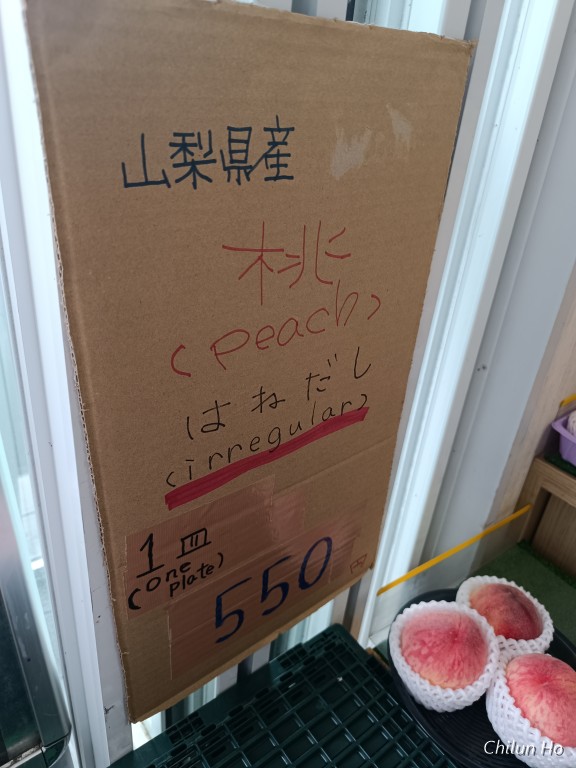 山梨県産
桃
(peach)
はねだし
(irregular)
1皿
(one
plate)
550
Chilun Ho